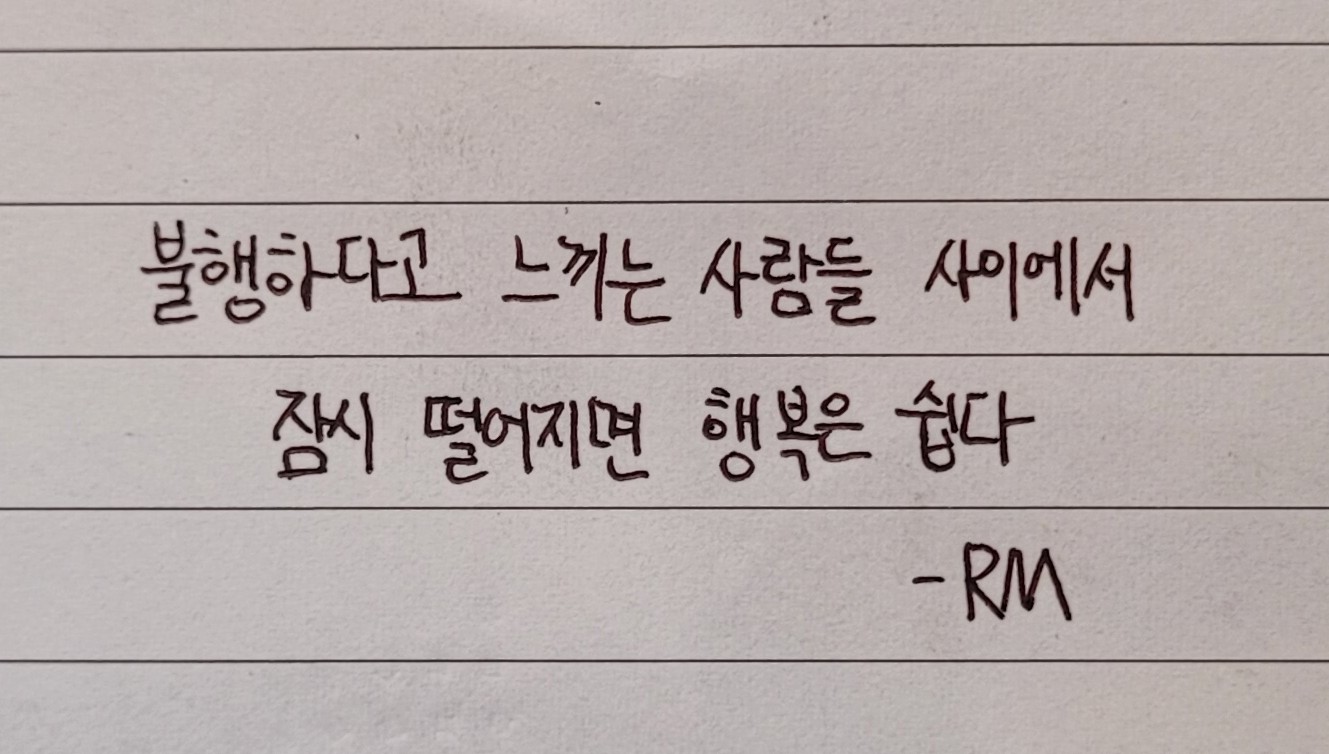 불행하다고 느끼는 사람들 사이에서
잠시 떨어지면 행복은 쉽다
-RM